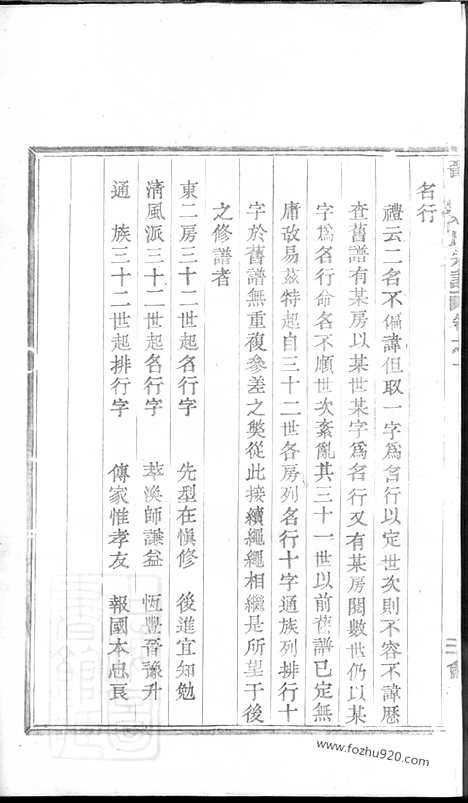 名行
禮云二名不偏諱但取一字爲名行以定世次則不容不諱歷
查舊譜有某房以某世某字爲名行又有某房閱數世仍以某
字爲名行命名不順世次紊亂其三十一世以前舊譜已定無
庸改易茲特起自三十二世各房列名行十字通族列排行十
字於舊譜無重複參差之獘從此接續繩繩相繼是所望于後
之修譜者
東二房三十二世起名行字 先型在愼修 後進宜知勉
淸風派三十二世起名行字 萃渙師謙益 恆豐晉豫升
通族三十二世起排行字 傳家惟孝友 報國本忠良
www.fozhu920.com